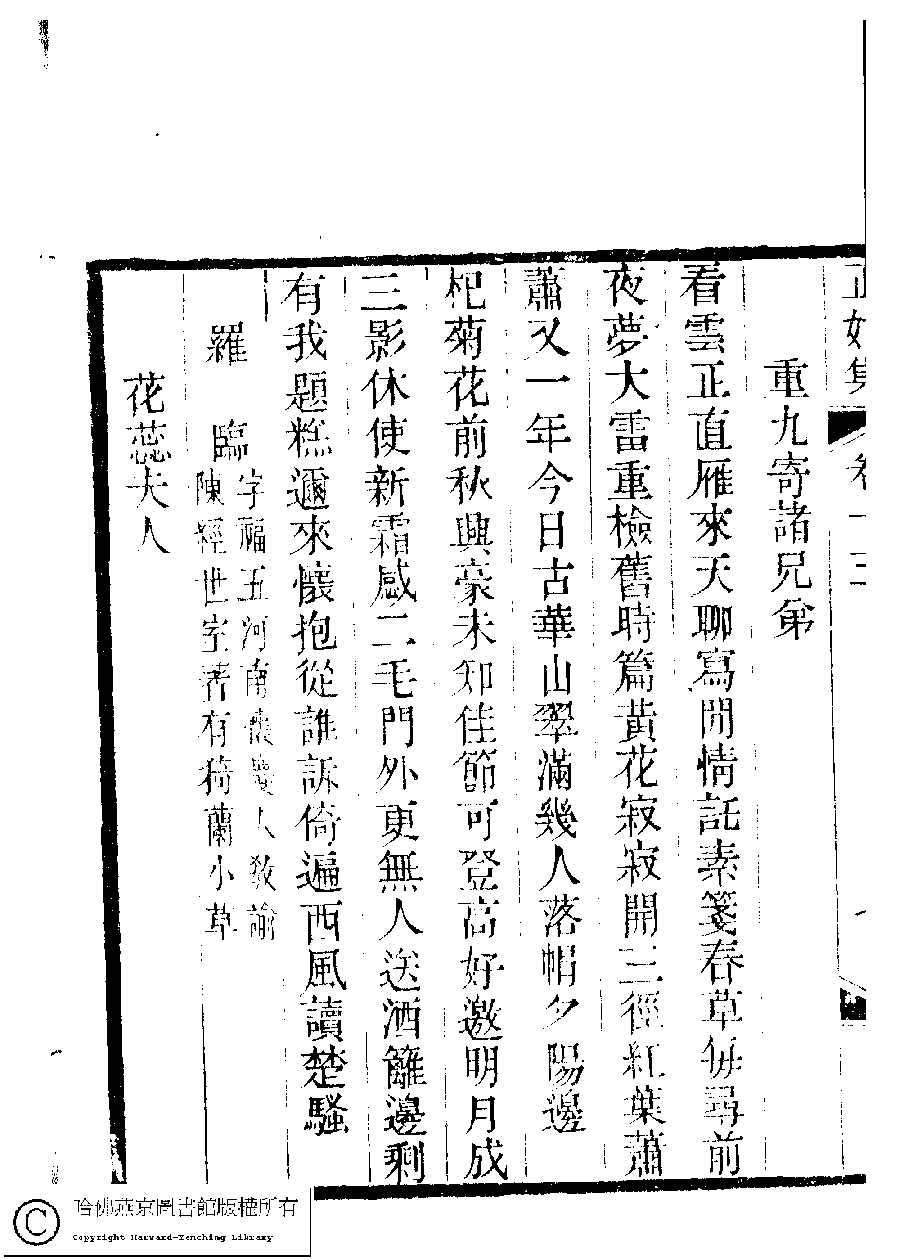 正始集
卷十三
重九寄諸兄弟
看雲正直雁來天聊寫閒情託素箋春草每尋前
夜夢大雷重檢舊時篇黃花寂寂開三徑紅葉蕭
蕭又一年今日古華山翠滿幾人落帽夕陽邊
杞菊花前秋興豪未知佳節可登高好邀明月成
三影休使新霜感二毛門外更無人送酒籬邊剩
有我題糕邇來懷抱從誰訴倚遍西風讀楚騷
羅臨
字福五河南懷慶人教諭
陳經世室著有猗蘭小草
花蕊夫人
哈佛燕京圖書館版權所有
Copyright Harvard-Yenching Library